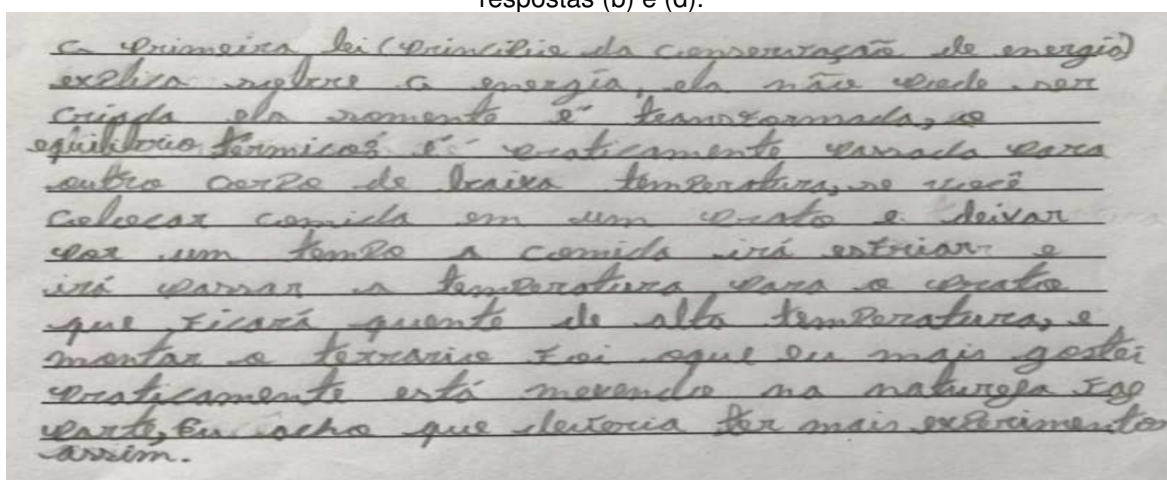 respostas (b) e (d).
a primeira lei (principio da conservação de energia)
explica sobre a energia, ela não pode ser
criada ela somente é transformada, o
equilibrio térmicos é praticamente passada para
outro corpo de baixa temperatura, se você
colocar comida em um prato e deixar
por um tempo a comida irá esfriar e
irá passar a temperatura para o prato
que ficará quente de alta temperatura, e
montar o terrario foi oque eu mais gostei
praticamente está mexendo na natureza faz
parte, Eu acho que deveria ter mais experimentos
assim.